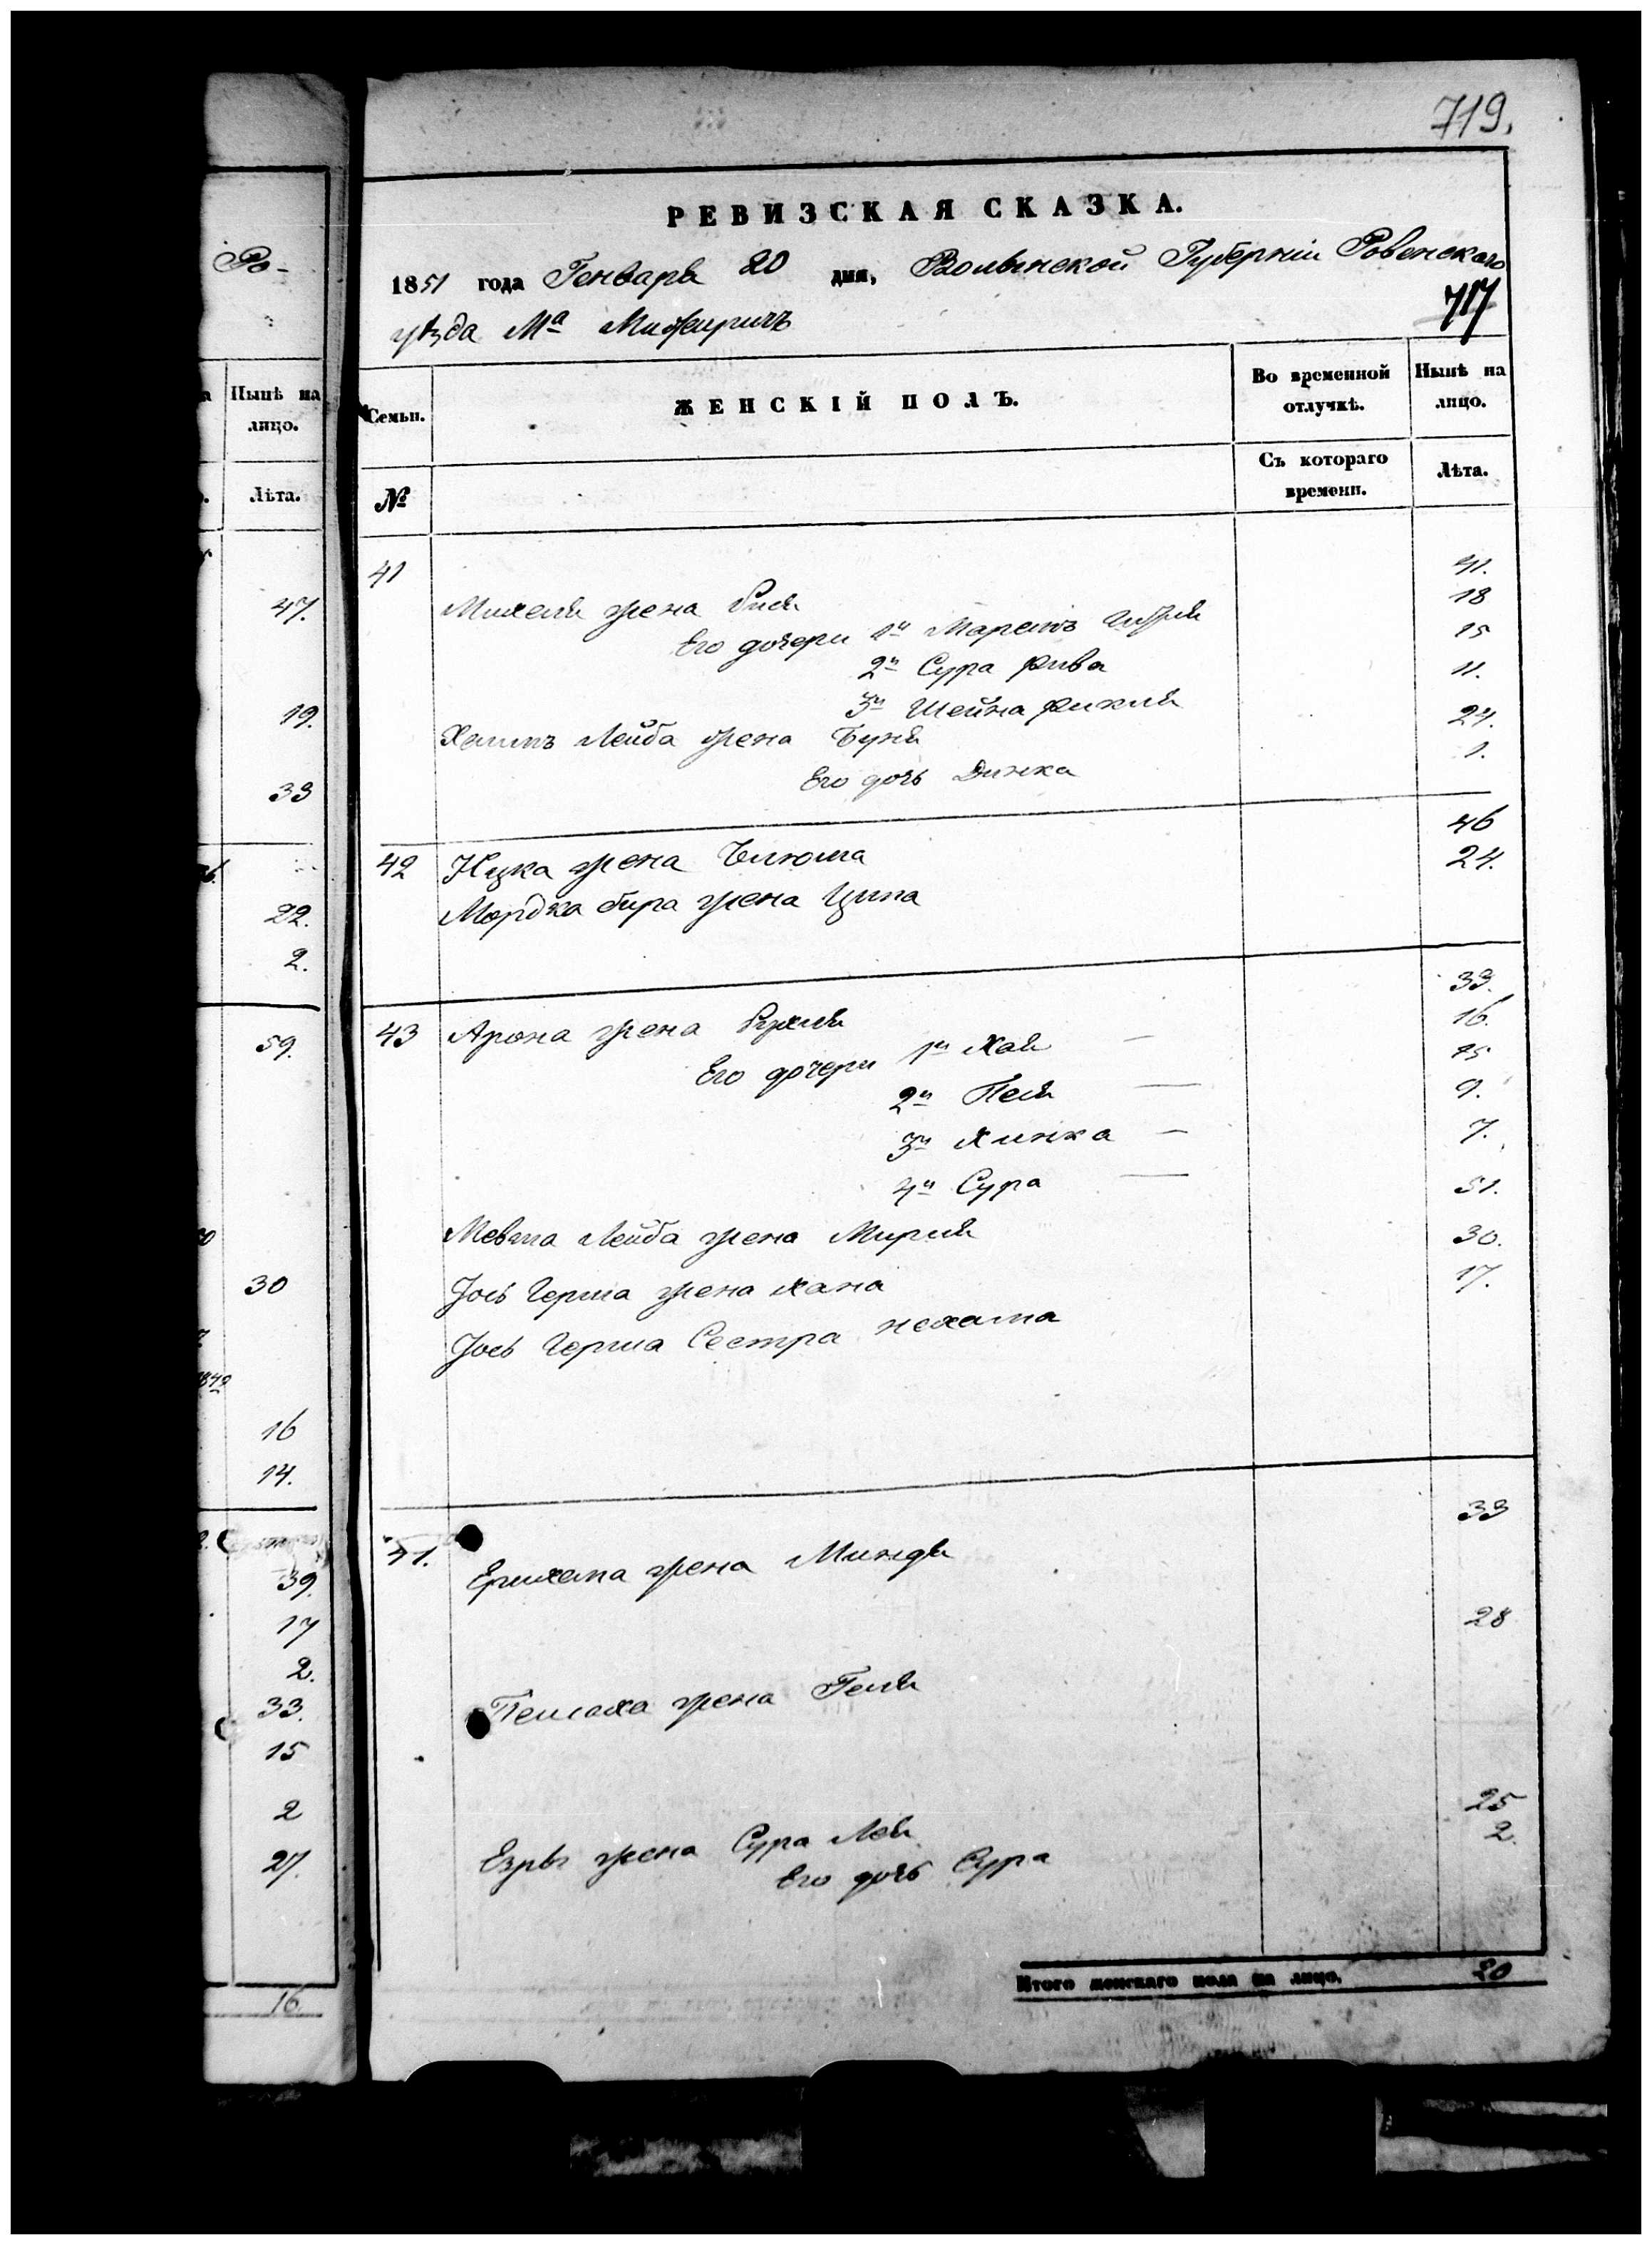 719.
РЕВИЗСКАЯ СКАЗКА.
1851 года Генваря 20 дня, Волынской Губерніи Ровенскаго
уѣзда Мᵃ Межиричъ
717
Семьи. ЖЕНСКІЙ ПОЛЪ. Во временной отлучкѣ. Нынѣ на лицо.
№ Съ котораго времени. Лѣта.
41 41.
жена 18
Его дочери 1я 15
2я Сура Рива 11.
3я Шейна 24.
Лейба жена Буня 1.
Его дочь Динка
46
42 Ицка жена 24.
Мордка жена Ципа
33.
43 Арона жена Рухля 16.
Его дочери 1я Хая — 15
2я Песя — 9.
3я Хинка — 7.
4я Сура — 51.
Лейба жена Миріля 30.
Іось Герша жена Хана 17.
Іось Герша Сестра Нехама
33
жена Миндя
28
Пейсаха жена Геня
25
Езры жена Сура Лея 2.
Его дочь Сура
Итого женскаго пола на лицо. 20
Ро-
Нынѣ на лицо.
Лѣта.
47.
19.
33
22.
2.
59.
30
16
14.
39.
17
2.
33.
15
2
27.
16